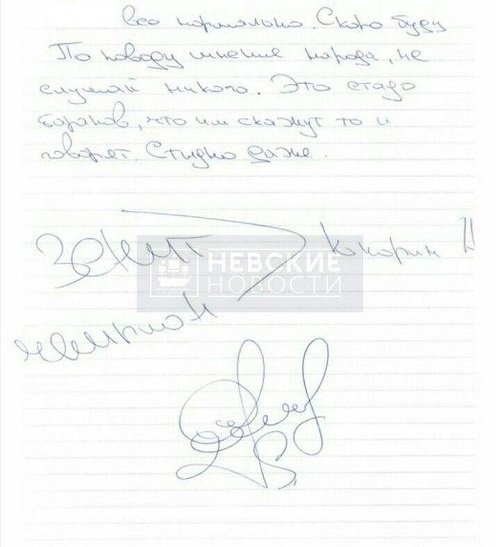 всё нормально. Скоро буду
По поводу мнение народа, не
слушай никого. Это стадо
баранов, что им скажут то и
говорят. Стыдно даже.
Зенит
Кокорин
НЕВСКИЕ
НОВОСТИ
чемпион